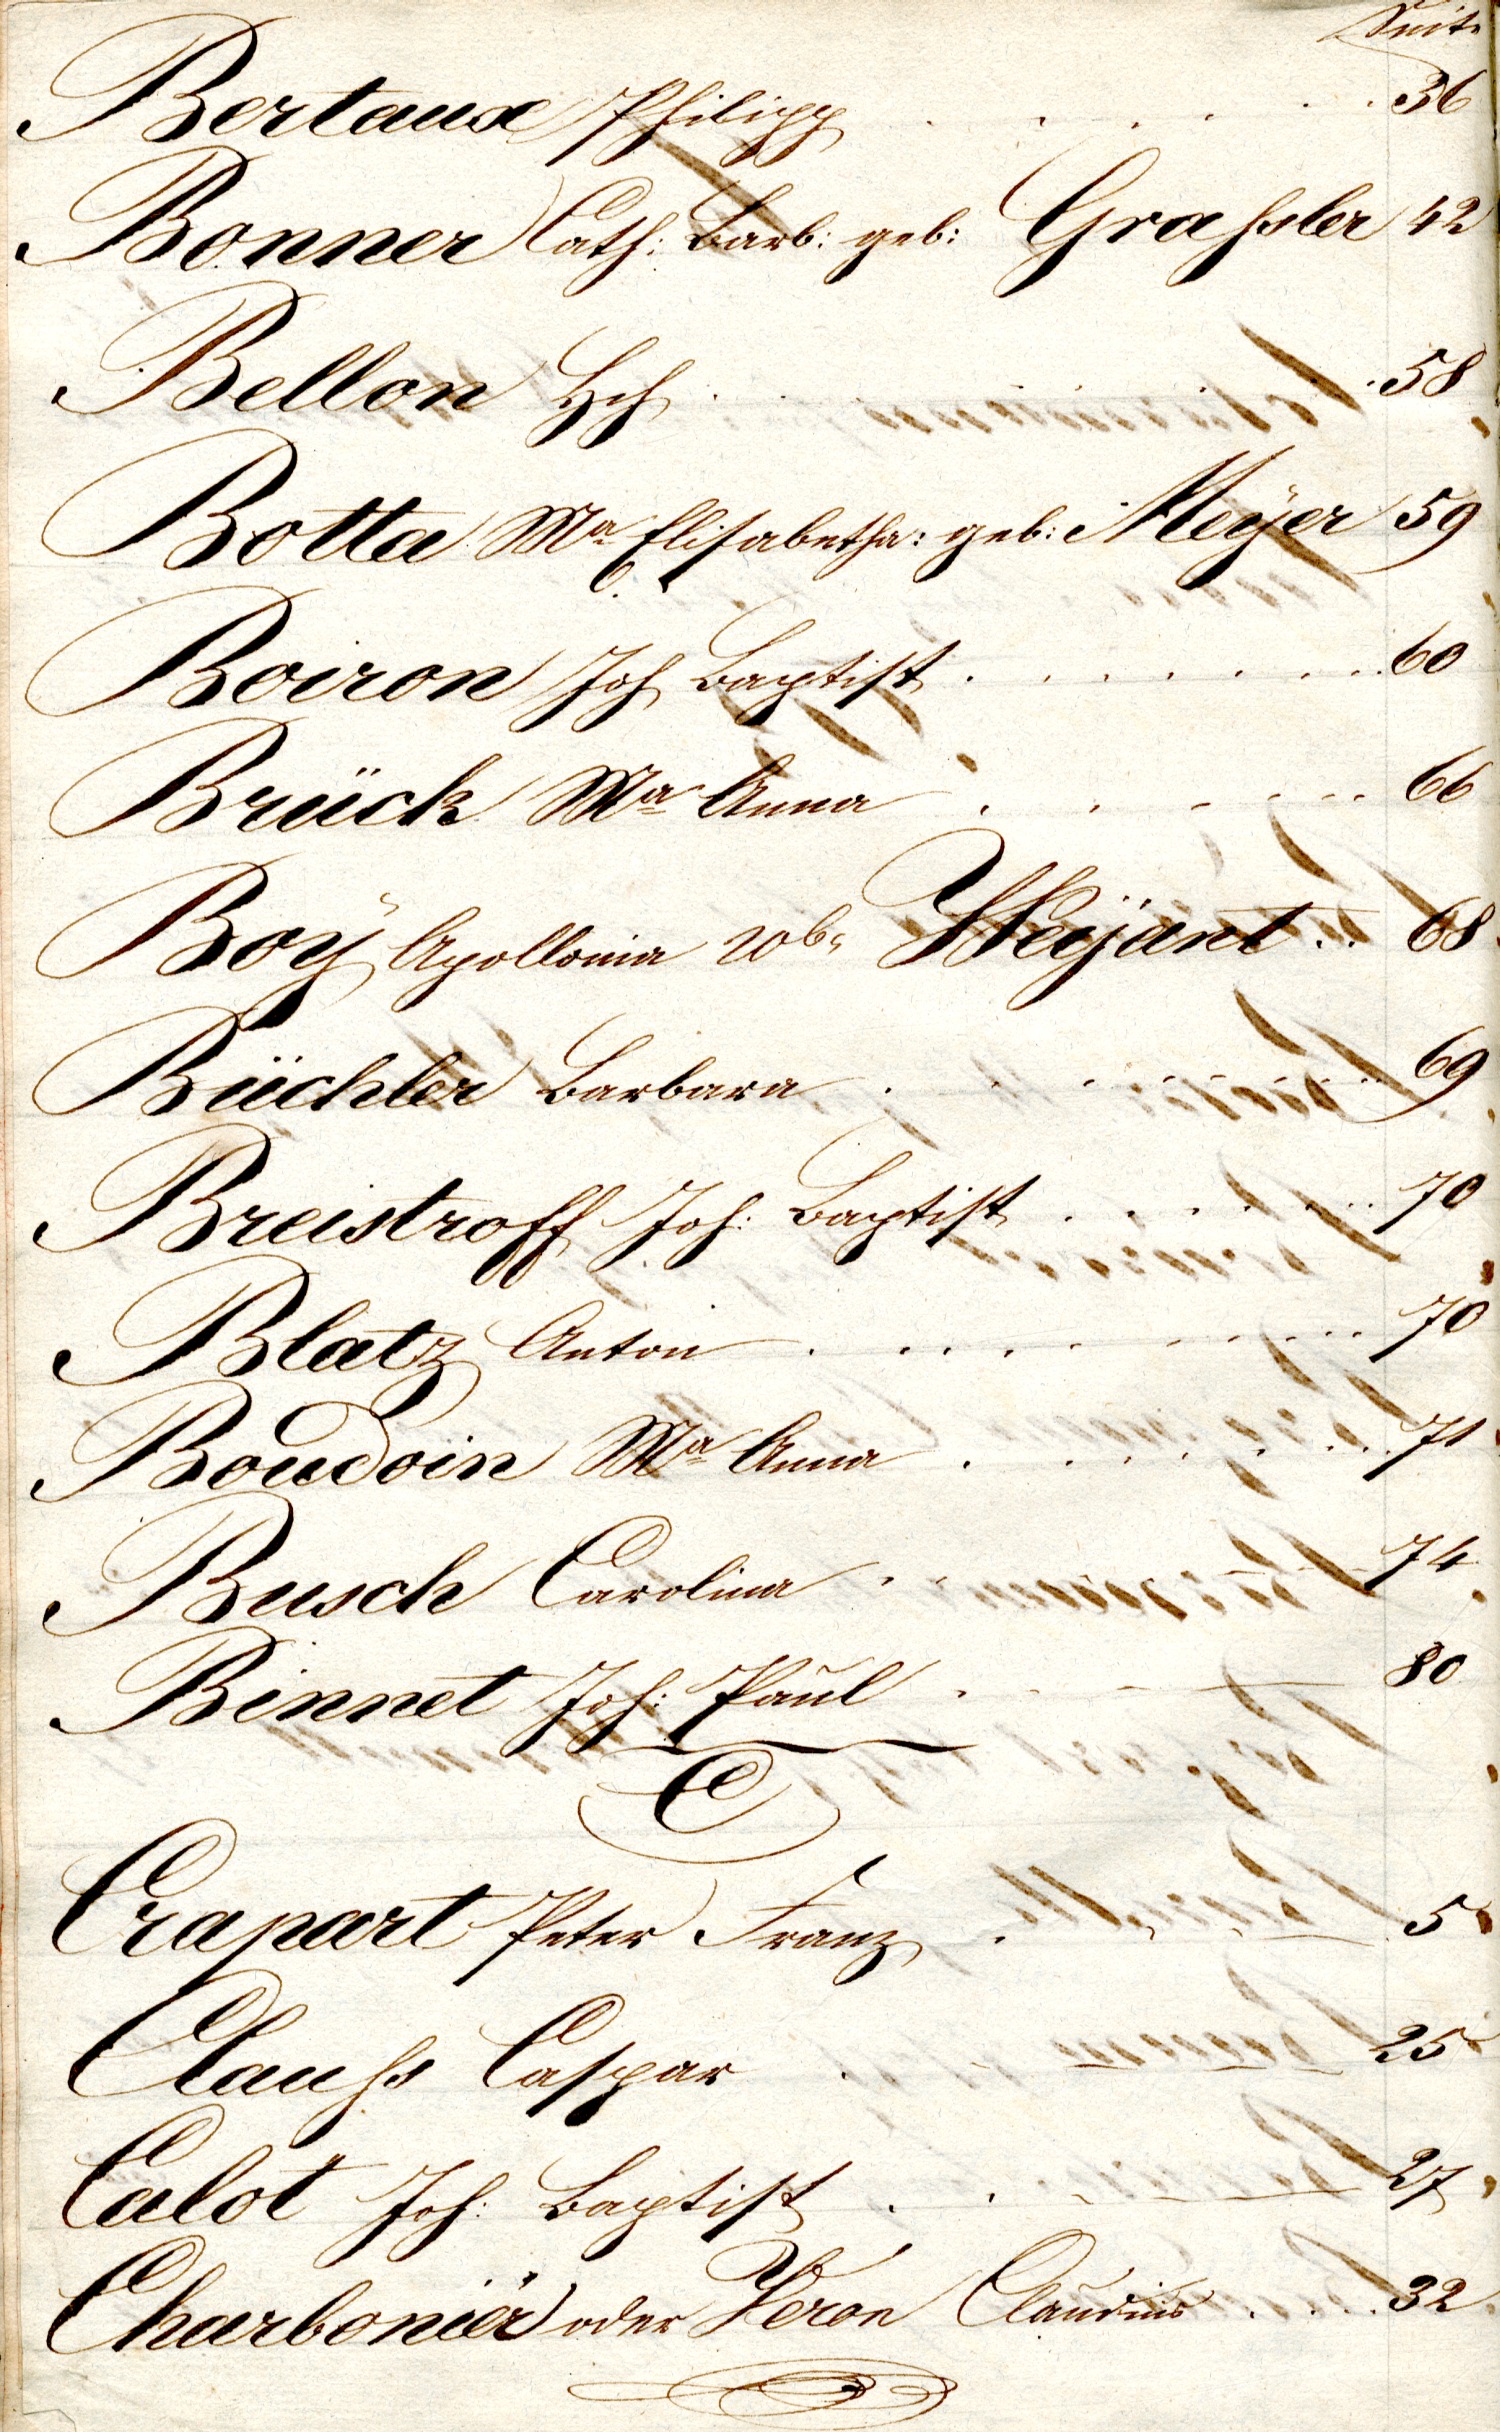 Seite
Bertaux Philipp . . . . . 36
Bonner Cath: Barb: geb: Graßsler 42
Bellon Hch . . . 58
Botta Ma Elisabetha: geb: Meÿer 59
Boiron Joh Baptist . . . . . . . . 60
Brück Ma Anna . . . . . . 66
Boy Apollonia Weÿant . . 68
Büchler Barbara . . . . . . . 69
Breistroff Joh: Baptist . . . . . . . 70
Blatz Anton . . . . . . . . . 70
Boudoin Ma Anna . . . . . . . 71
Busch Carolina . . . . 74
Binnet Joh: Paŭl . . . . 80
C
Crapart Peter Franz . . . . 5
Clauhs Caspar . . 25
Calot Joh: Baptist . . . 27
Charbonier oder Veron Claudius . . . . 32